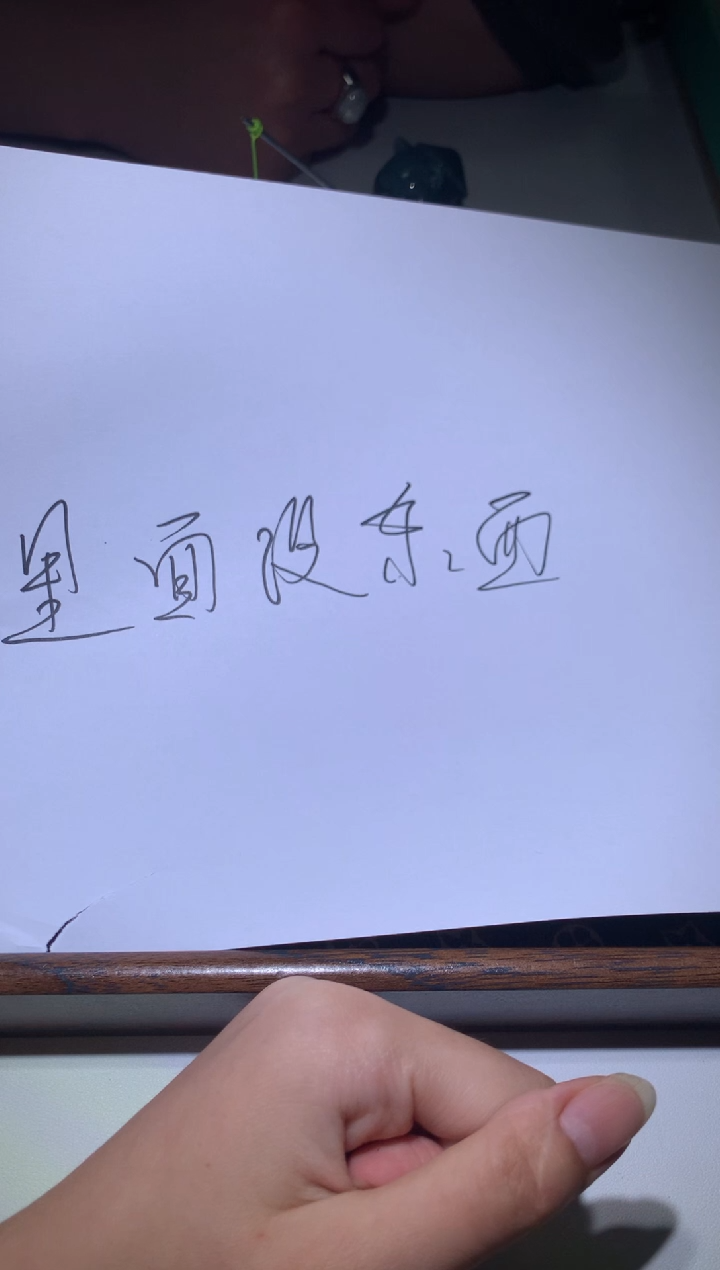 里面没东西